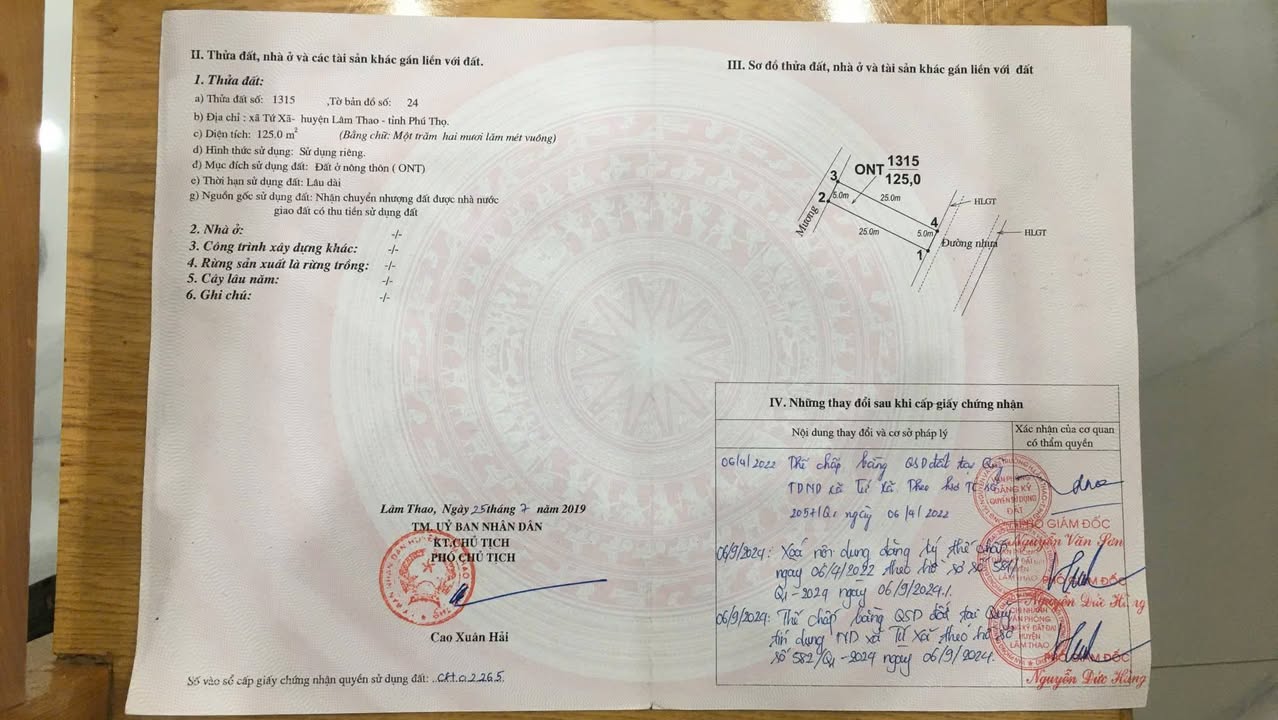 II. Thửa đất, nhà ở và các tài sản khác gắn liền với đất.
1. Thửa đất:
a) Thửa đất số: 1315 ,Tờ bản đồ số: 24
b) Địa chỉ : xã Tứ Xã- huyện Lâm Thao - tỉnh Phú Thọ.
c) Diện tích: 125.0 m² (Bằng chữ: Một trăm hai mươi lăm mét vuông)
d) Hình thức sử dụng: Sử dụng riêng.
đ) Mục đích sử dụng đất: Đất ở nông thôn ( ONT)
e) Thời hạn sử dụng đất: Lâu dài
g) Nguồn gốc sử dụng đất: Nhận chuyển nhượng đất được nhà nước
giao đất có thu tiền sử dụng đất
2. Nhà ở: -/-
3. Công trình xây dựng khác: -/-
4. Rừng sản xuất là rừng trồng: -/-
5. Cây lâu năm: -/-
6. Ghi chú: -/-
Lâm Thao, Ngày 25 tháng 7 năm 2019
TM. UỶ BAN NHÂN DÂN
KT.CHỦ TỊCH
PHÓ CHỦ TỊCH
Cao Xuân Hải
Số vào sổ cấp giấy chứng nhận quyền sử dụng đất: CH.02265
III. Sơ đồ thửa đất, nhà ở và tài sản khác gắn liền với đất
ONT 1315
125,0
3
2
5.0m
25.0m
Mương
HLGT
4
5.0m
25.0m
1
Đường nhựa
HLGT
IV. Những thay đổi sau khi cấp giấy chứng nhận
Nội dung thay đổi và cơ sở pháp lý
Xác nhận của cơ quan
có thẩm quyền
06/4/2022 Thế chấp bằng QSD đất tại Quỹ
TDND xã Tứ Xã Theo TC số
2057/Q1 ngày 06/4/2022
PHÓ GIÁM ĐỐC
Nguyễn Văn Sơn
06/9/2024: Xoá nội dung đăng ký thế chấp
ngày 06/4/2022 theo hồ sơ số 581/
Q1-2024 ngày 06/9/2024.
PHÓ GIÁM ĐỐC
Nguyễn Đức Hùng
06/9/2024: Thế chấp bằng QSD đất tại Quỹ
tín dụng ND xã Tứ Xã theo hồ sơ
số 582/Q1-2024 ngày 06/9/2024.
CHI NHÁNH
VĂN PHÒNG
ĐĂNG KÝ ĐẤT ĐAI
HUYỆN
LÂM THAO
PHÓ GIÁM ĐỐC
Nguyễn Đức Hùng